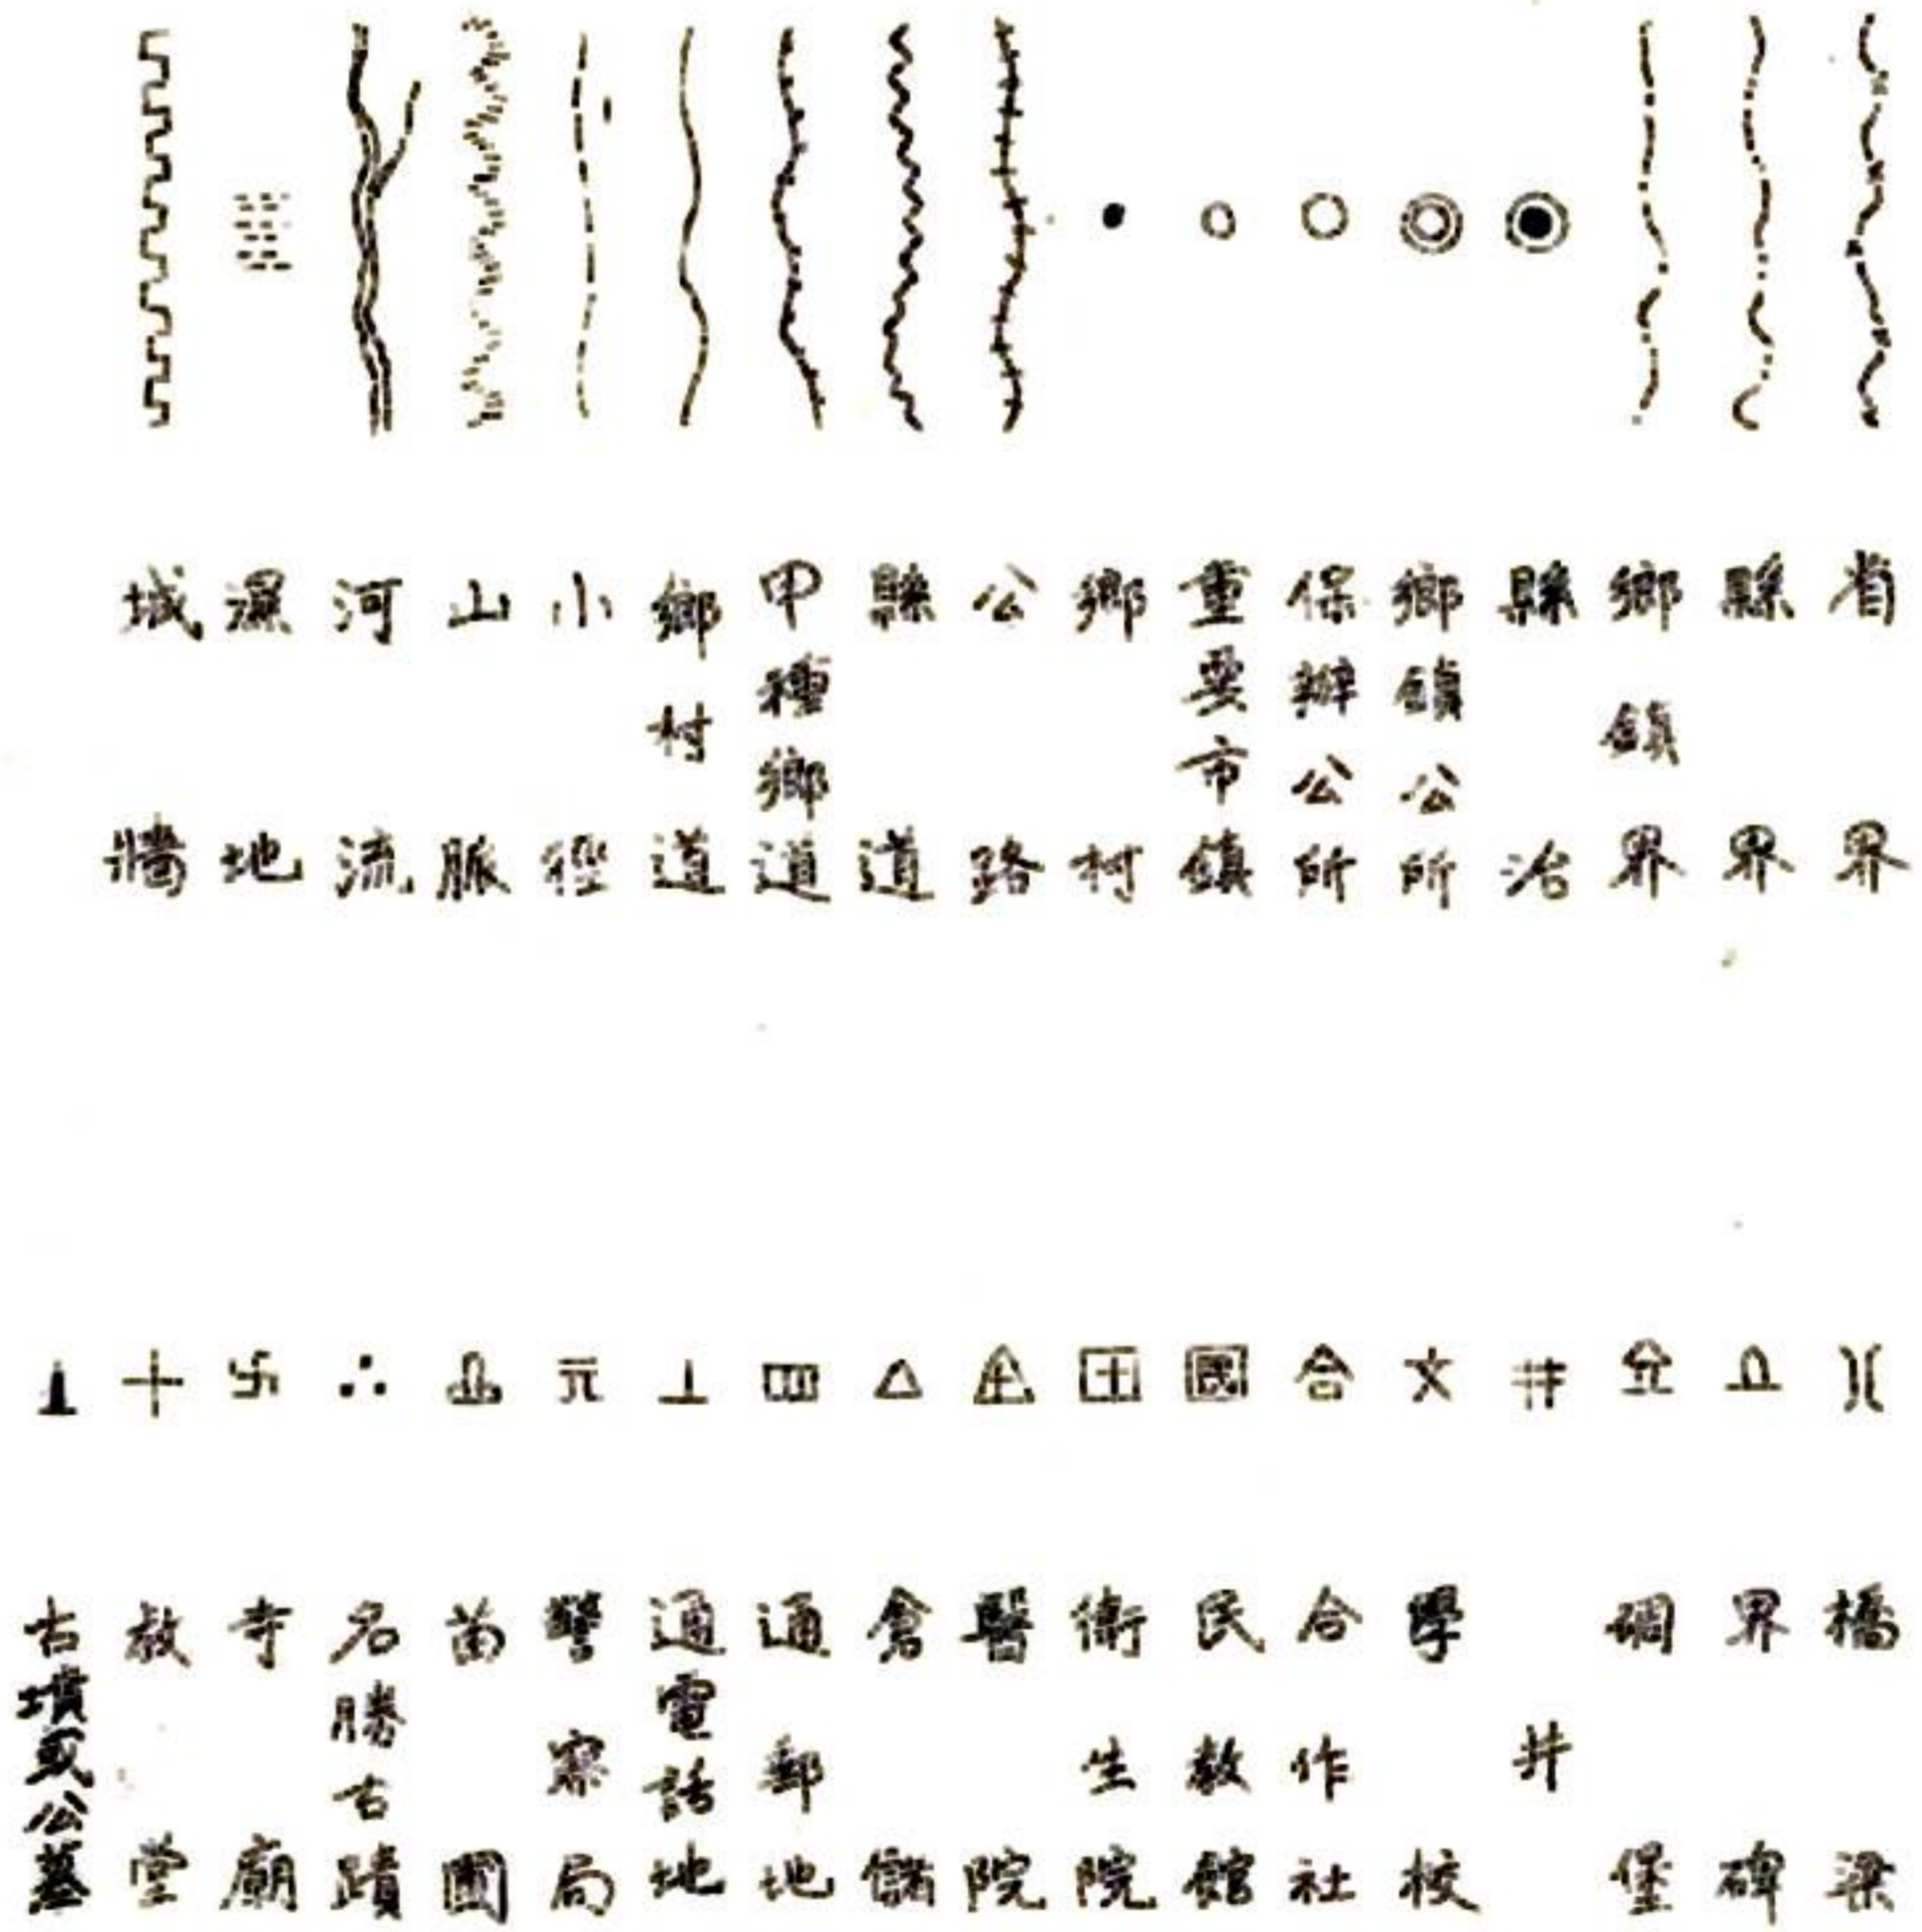 省界
縣界
鄉鎮界
縣治
鄉鎮公所
保辦公所
重要市鎮
鄉村
公路
縣道
甲種鄉道
鄉村道
小徑
山脈
河流
濕地
城牆
橋梁
界碑
碉堡
井
學校
合作社
民教館
衛生院
醫院
倉儲
通郵地
通電話地
警察局
苗圃
名勝古蹟
寺廟
教堂
古墳或公墓